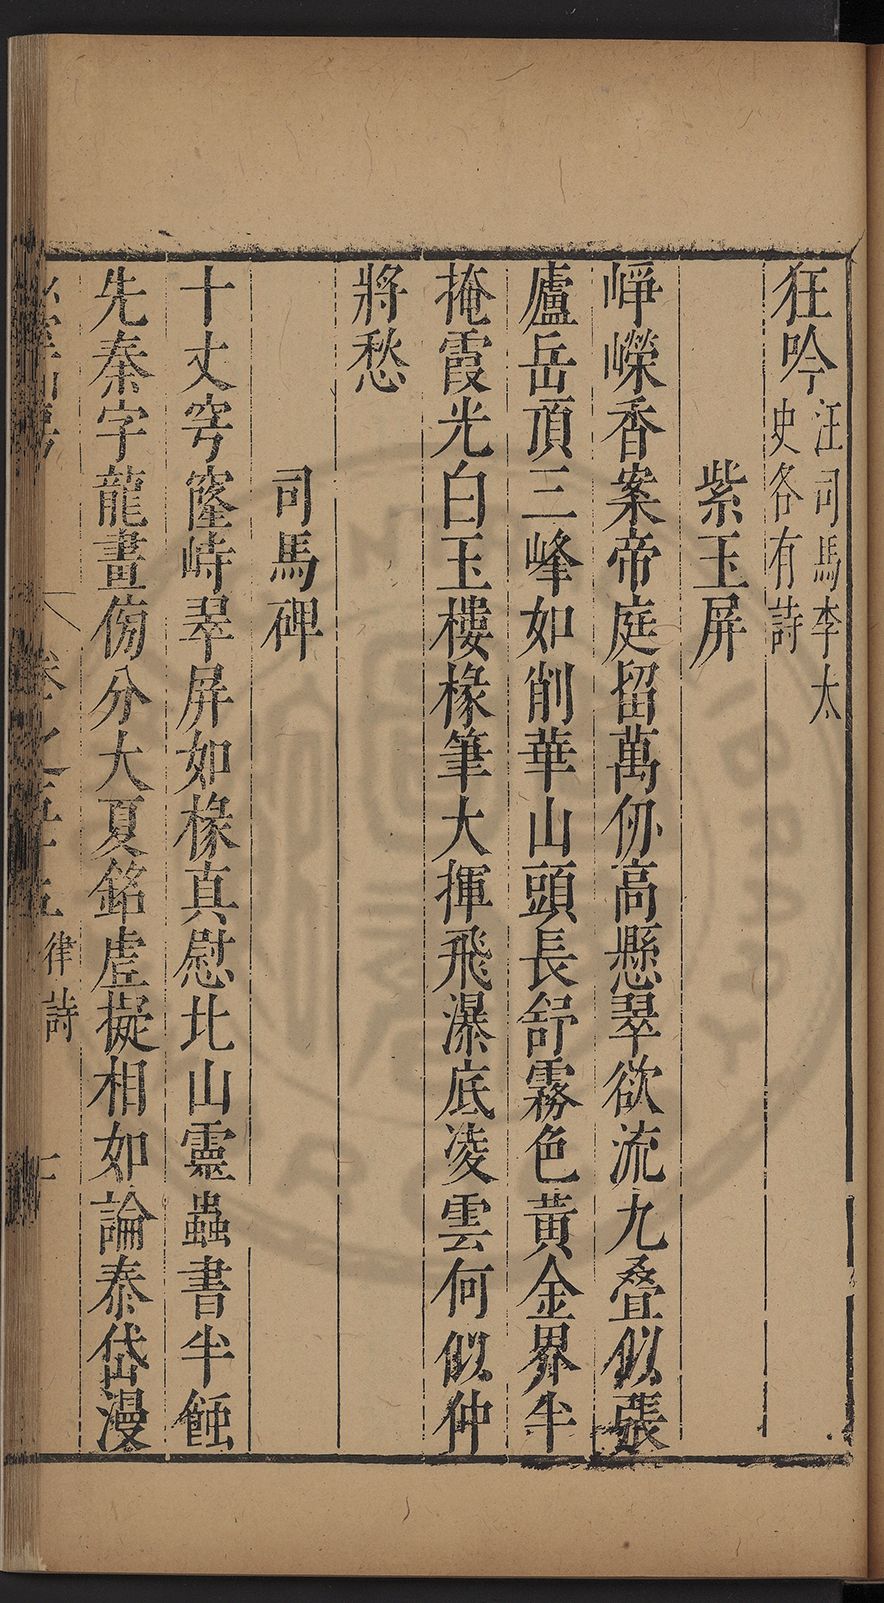 狂吟汪司馬李太
史各有詩
紫玉屏
崢嶸香案帝庭留萬仞高懸翠欲流九叠似張
廬岳頂三峰如削華山頭長舒霧色黃金界半
掩霞光白玉樓椽筆大揮飛瀑底凌雲何似仲
將愁
司馬碑
十丈穹窿峙翠屏如椽真慰北山靈蟲書半蝕
先秦字龍畫傍分大夏銘虛擬相如論泰岱漫
卷之五十五律詩